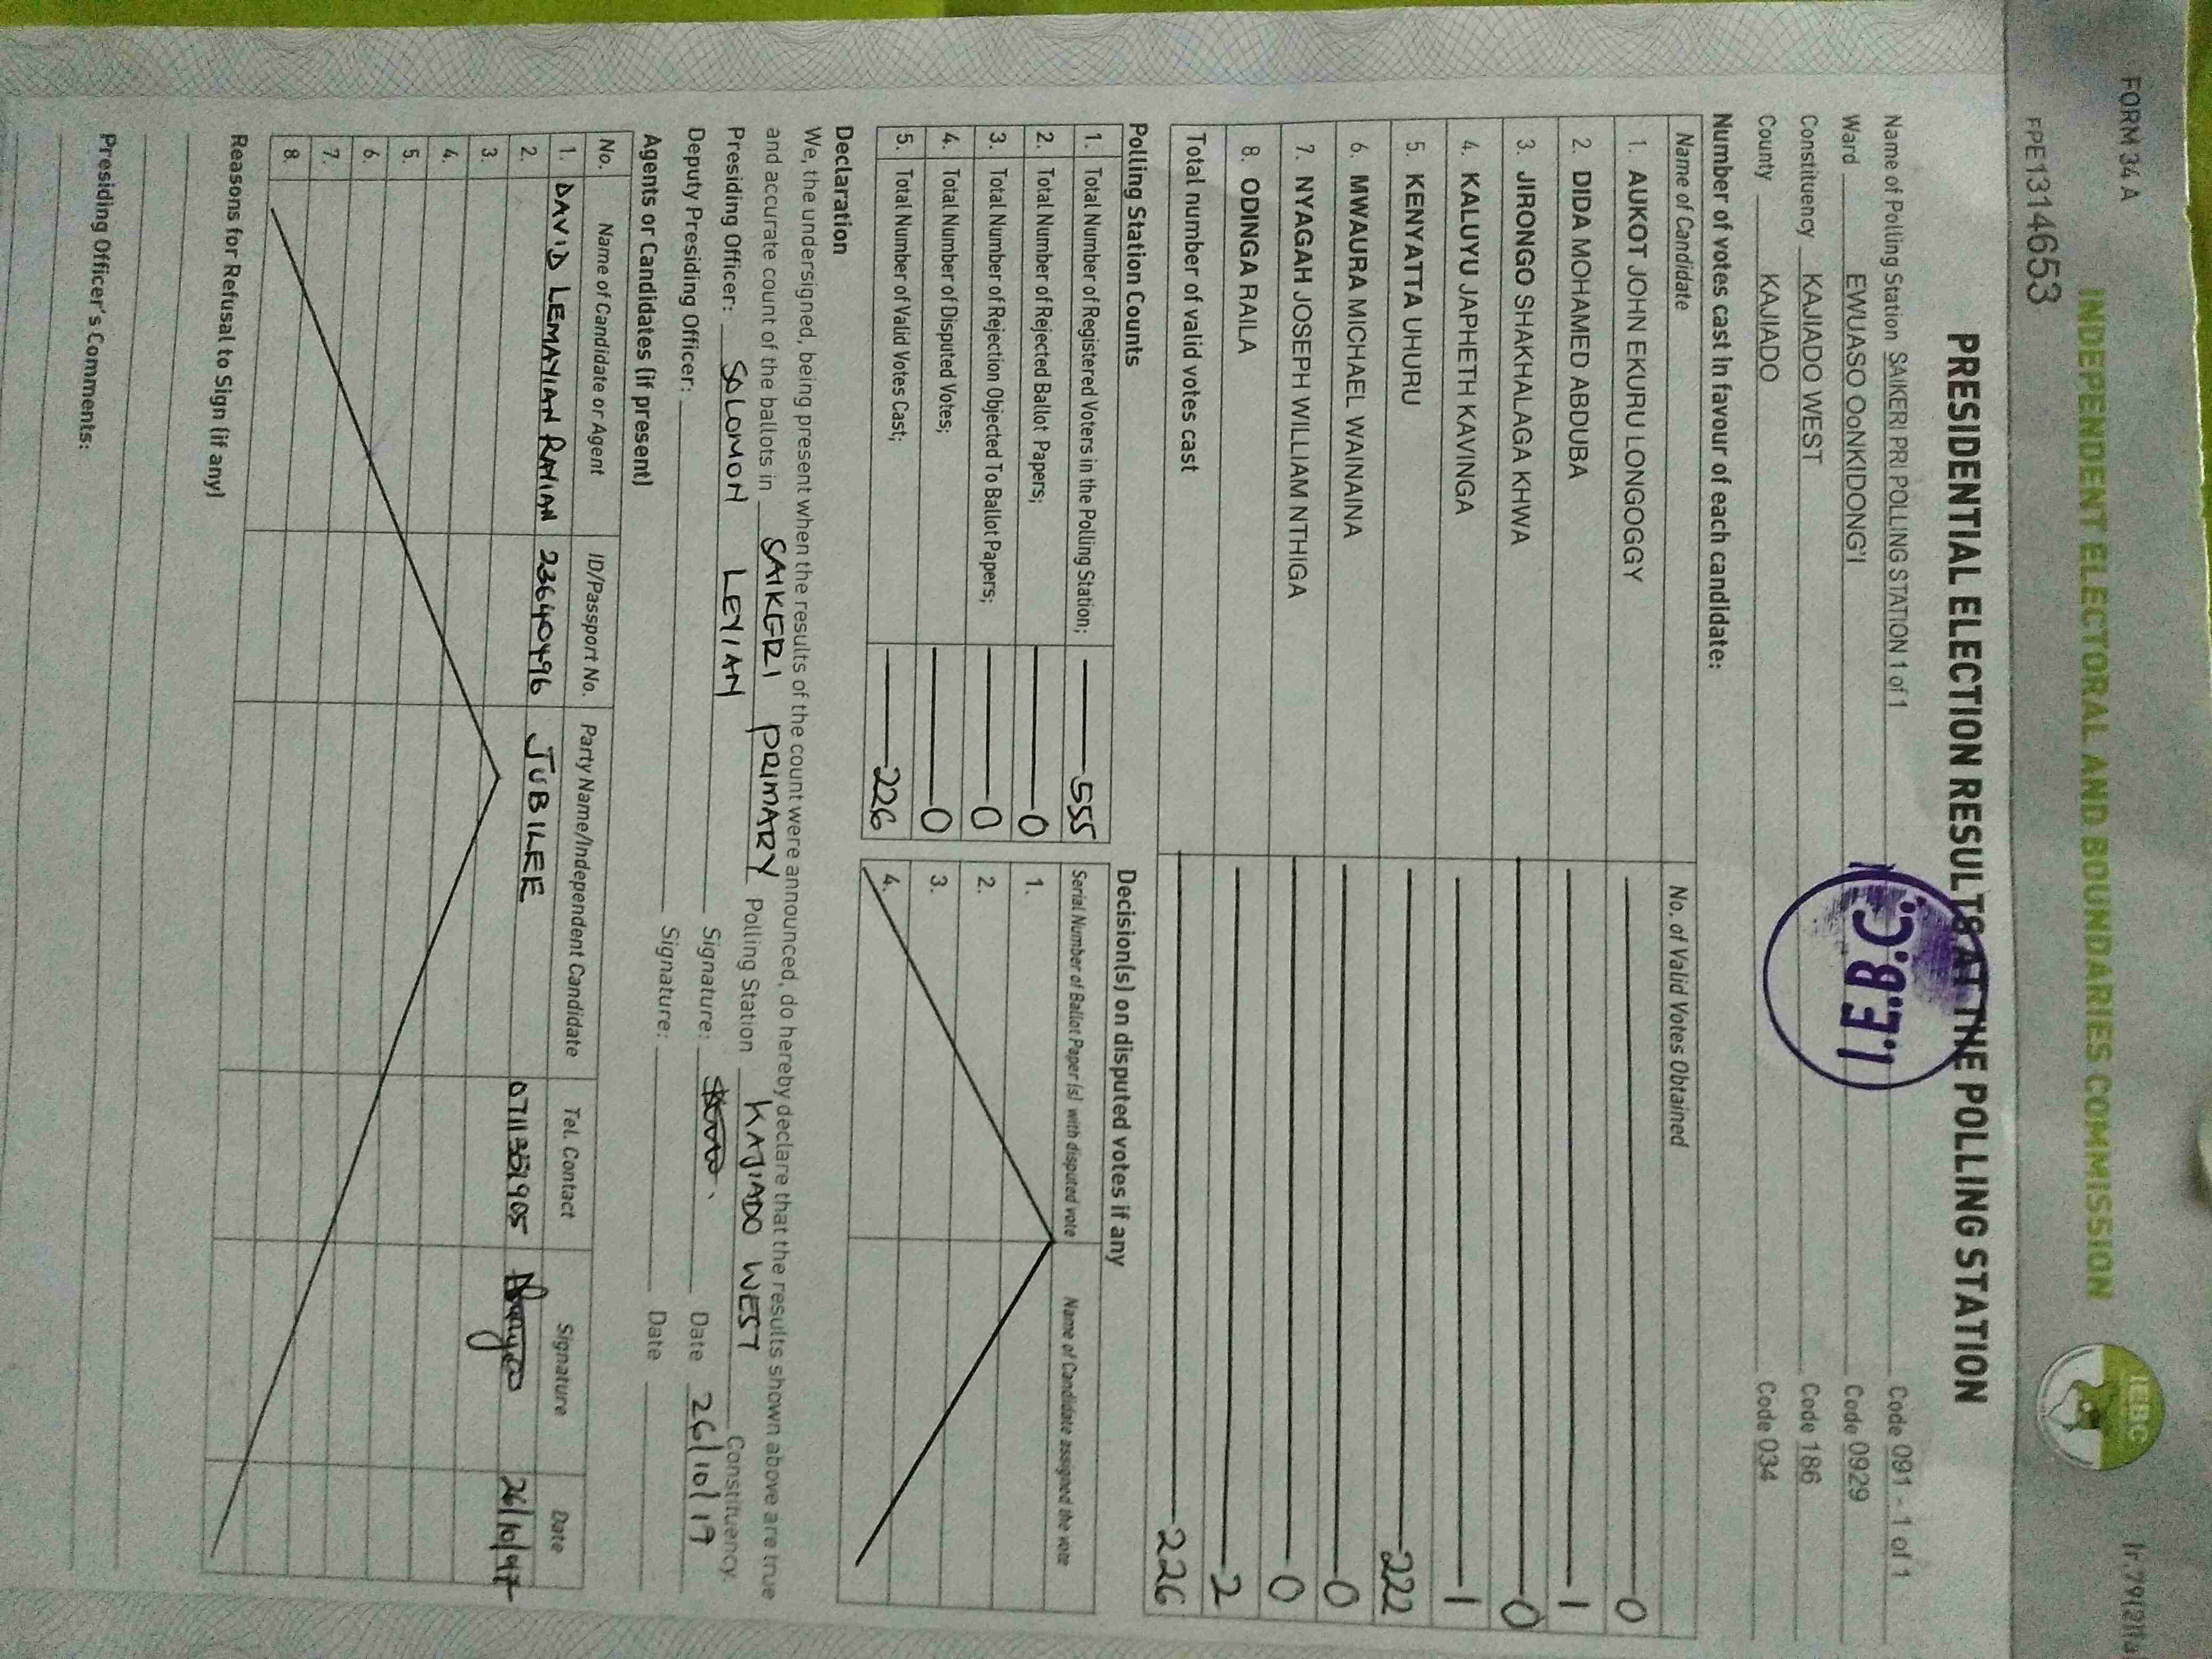 FORM 34 A
INDEPENDENT ELECTORAL AND BOUNDARIES COMMISSION
IEBC
FPE1314653
PRESIDENTIAL ELECTION RESULTS AT THE POLLING STATION
Name of Polling Station SAIKERI PRI POLLING STATION 1 of 1 Code 091 - 1 of 1
Ward EWUASO OoNKIDONG'I Code 0929
Constituency KAJIADO WEST Code 186
County KAJIADO Code 034
I.E.B.C.
Number of votes cast in favour of each candidate:
Name of Candidate No. of Valid Votes Obtained
1. AUKOT JOHN EKURU LONGOGGY 0
2. DIDA MOHAMED ABDUBA 1
3. JIRONGO SHAKHALAGA KHWA 0
4. KALUYU JAPHETH KAVINGA 1
5. KENYATTA UHURU 222
6. MWAURA MICHAEL WAINAINA 0
7. NYAGAH JOSEPH WILLIAM NTHIGA 0
8. ODINGA RAILA 2
Total number of valid votes cast 226
Polling Station Counts
1. Total Number of Registered Voters in the Polling Station; 555
2. Total Number of Rejected Ballot Papers; 0
3. Total Number of Rejection Objected To Ballot Papers; 0
4. Total Number of Disputed Votes; 0
5. Total Number of Valid Votes Cast; 226
Decision(s) on disputed votes if any
Serial Number of Ballot Paper (s) with disputed vote Name of Candidate assigned the vote
1.
2.
3.
4.
Declaration
We, the undersigned, being present when the results of the count were announced, do hereby declare that the results shown above are true
and accurate count of the ballots in SAIKERI PRIMARY Polling Station KAJIADO WEST Constituency.
Presiding Officer: SOLOMON LEYIAN Signature: Date 26/10/17
Deputy Presiding Officer: Signature: Date
Agents or Candidates (if present)
No. Name of Candidate or Agent ID/Passport No. Party Name/Independent Candidate Tel. Contact Signature Date
1. DAVID LEMAYIAN RAYIAN 23640496 JUBILEE 0711351905 26/10/17
2.
3.
4.
5.
6.
7.
8.
Reasons for Refusal to Sign (if any)
Presiding Officer's Comments: